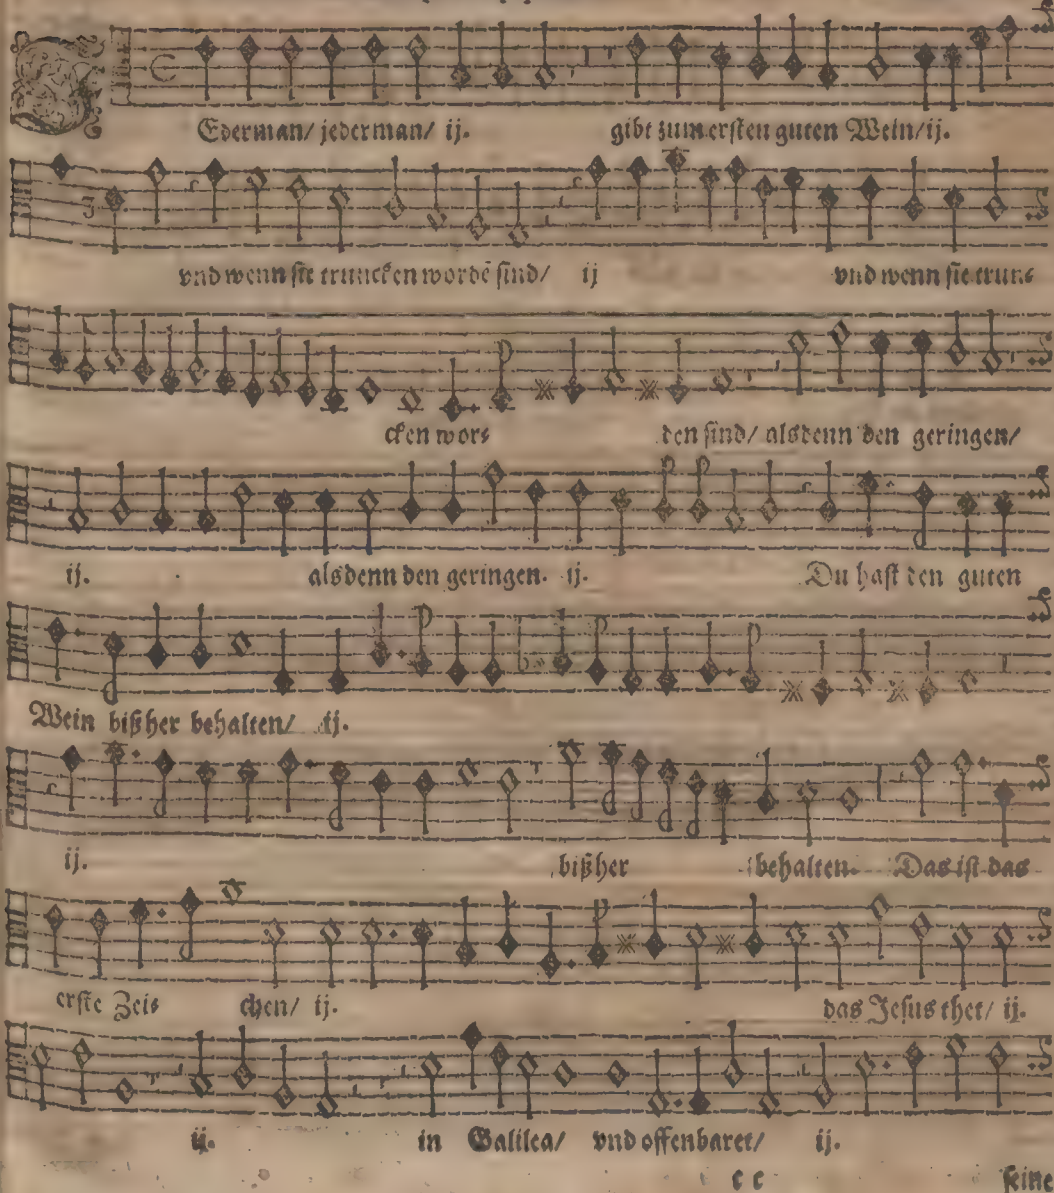 JEderman/ jederman/ ij. gibt zum ersten guten Wein/ ij.
vnd wenn sie truncken wordē sind/ ij vnd wenn sie trun-
cken wor- den sind/ alsdenn den geringen/
ij. alsdenn den geringen. ij. Du hast den guten
Wein bißher behalten/ ij.
ij. bißher behalten. Das ist das
erste Zei- chen/ ij. das Jesus thet/ ij.
ij. in Galilea/ vnd offenbaret/ ij.
c c seine